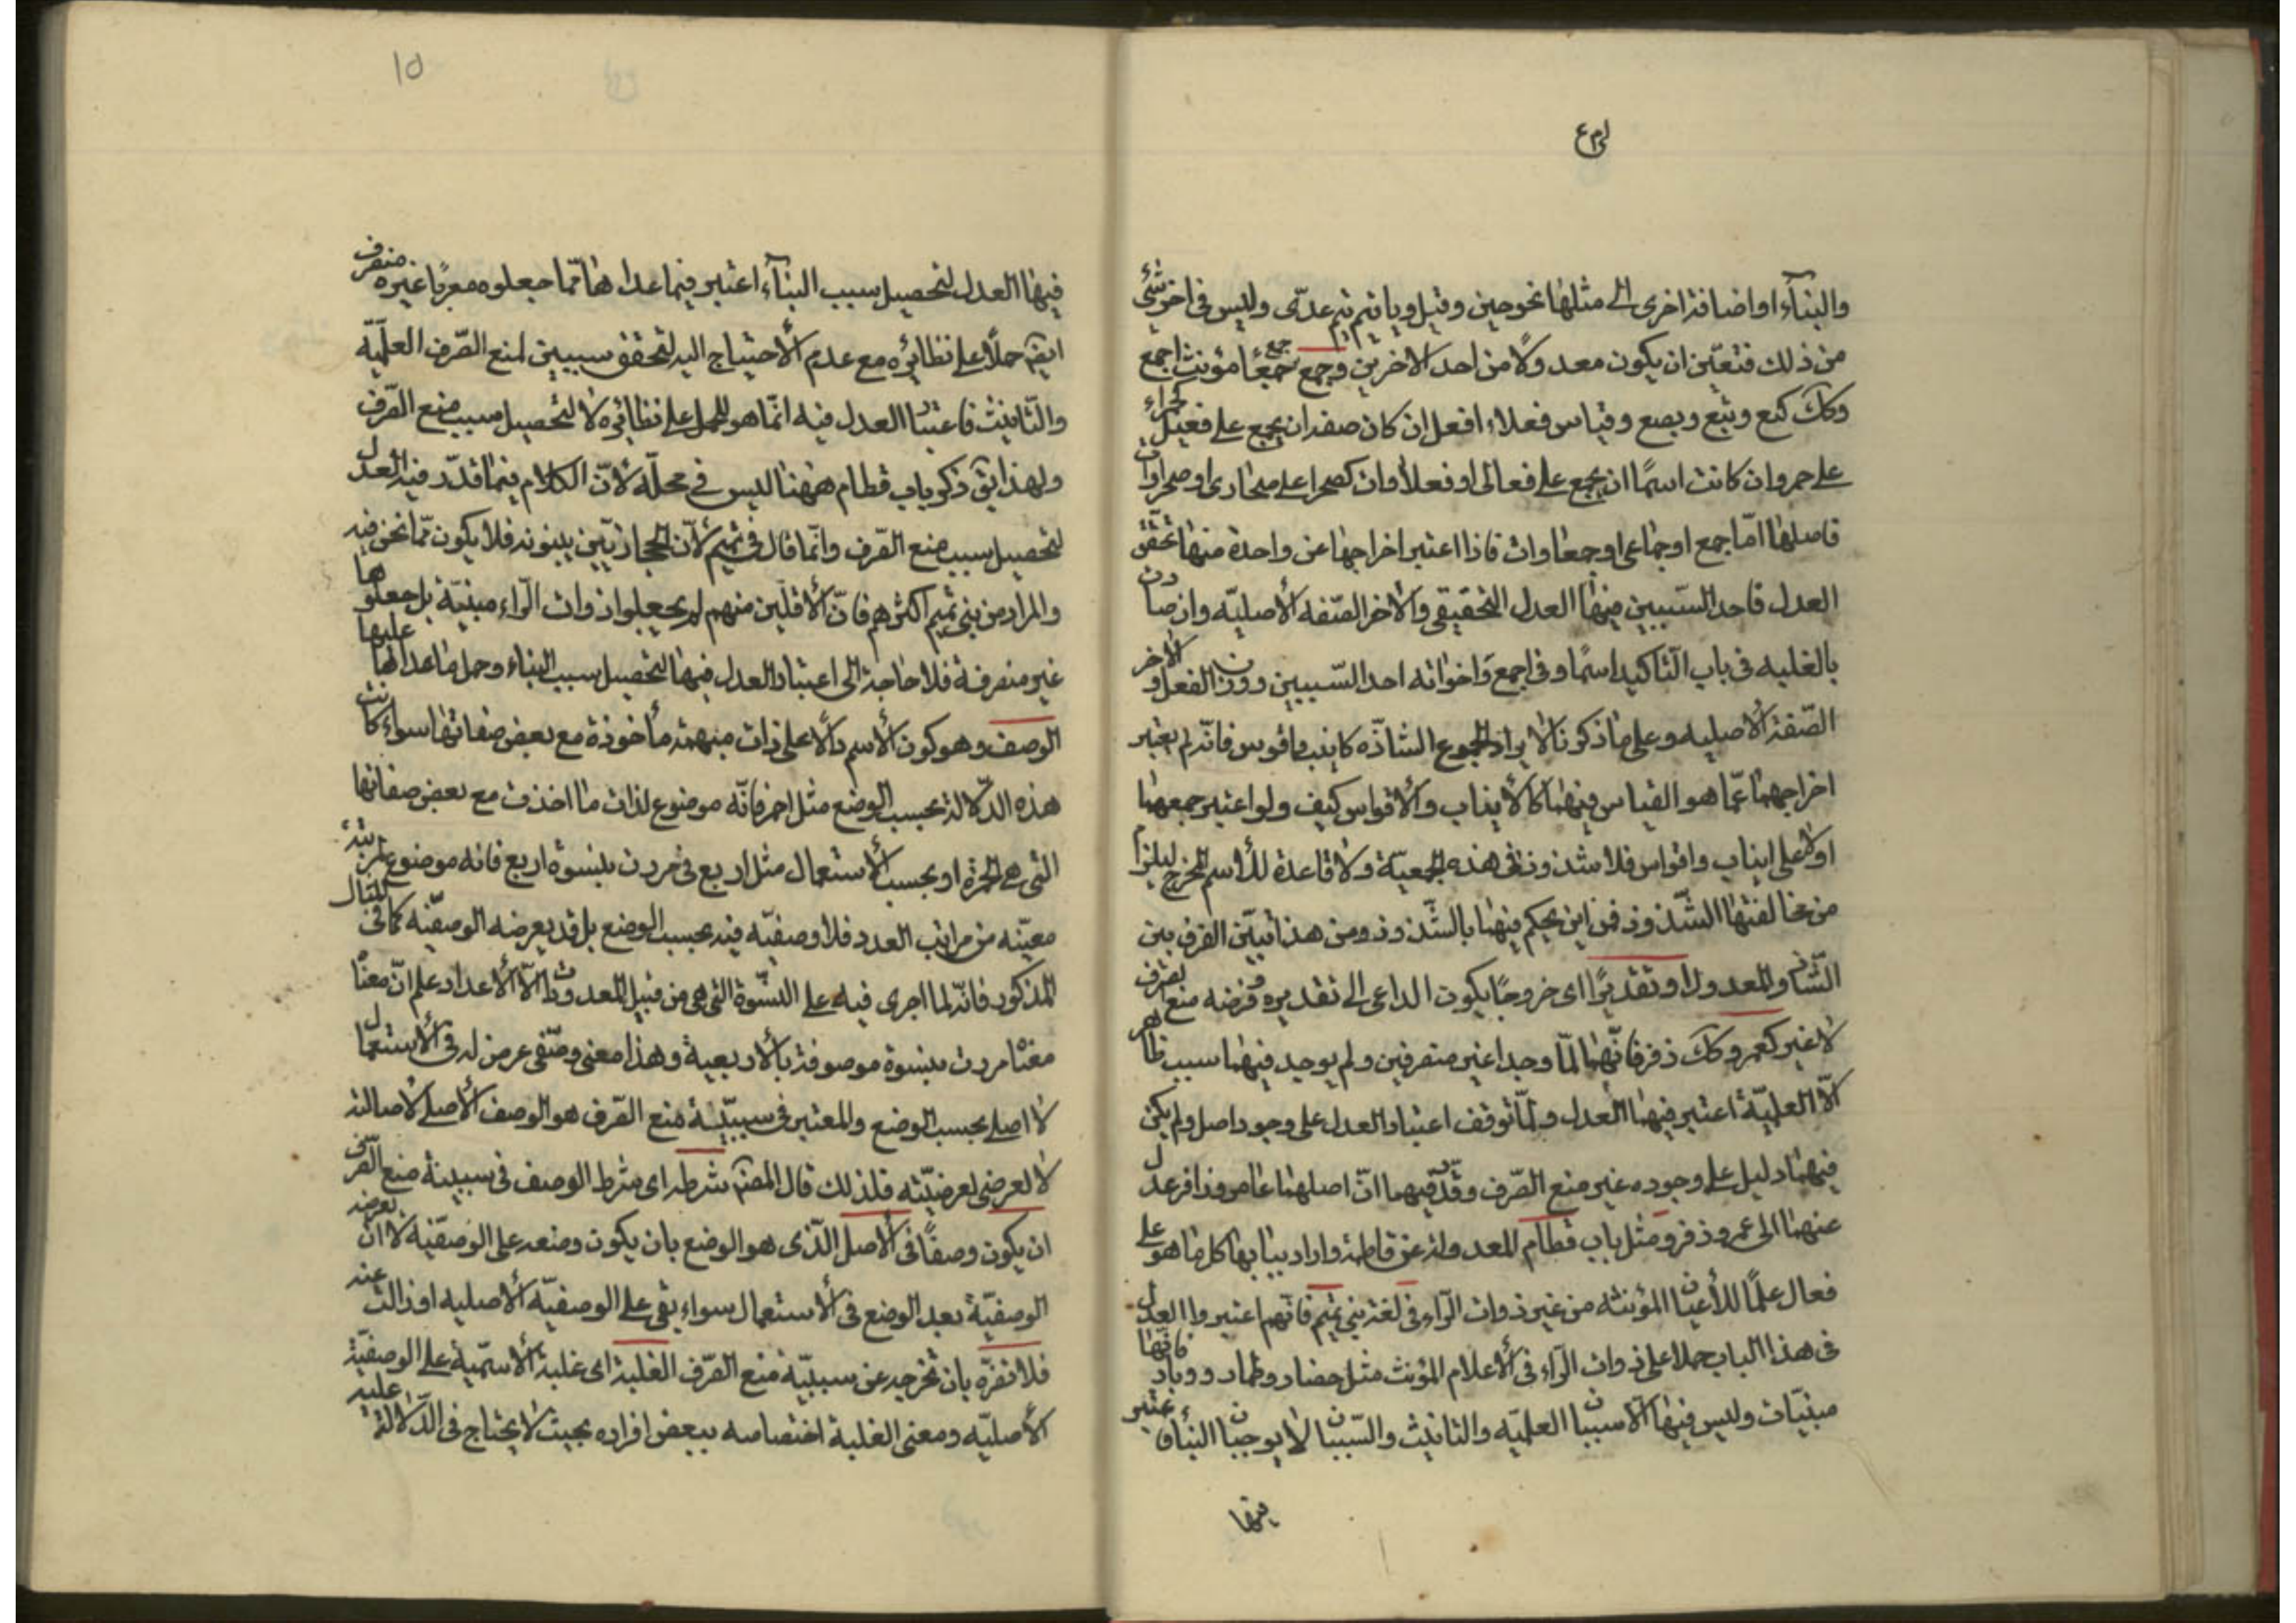 والبناء او اضافة اخرى الى مثلها نحو حينئذ وقبل ويا تيم تيم عدّى وليس فى اخر شئ
من ذلك فتعيّن ان يكون معدولا من احد الاخرين وجمع جمع جمعاء مؤنث اجمع
وكك كتع وبتع وبصع وقياس فعلاء افعل ان كان صفة ان يجمع على فعل كحمراء
على حمر وان كانت اسمًا ان يجمع على فعالى او فعلاوات كصحرا على صحارى او صحراوات
فاصلها امّا جمع او جماعى او جمعاوات فاذا اعتبر اخراجها عن واحدة منها تحقّق
العدل فاحد السّببين فيها العدل التحقيقى والاخر الصّفه الأصليّه وان صارت
بالغلبه فى باب التّاكيد اسمًا وفى اجمع واخواته احد السّببين وزن الفعل والاخر
الصّفة الأصليه وعلى ما ذكرنا لا يراد الجموع الشاذّه كانيب واقوس فانّه لم يعتبر
اخراجهما عمّا هو القياس فيهما كالأنياب والأقواس كيف ولو اعتبر جمعهما
اولا على انياب واقواس فلا شذوذ فى هذه الجمعيّة ولا قاعدة للاسم المخرج ليلزم
من مخالفتها الشّذوذ فمن اين يحكم فيهما بالشّذوذ ومن هذا تبيّن الفرق بين
الشّاذ والمعدول او تقديرًا اى خروجًا يكون الداعى الى تقديره وفرضه منع الصرف
لا غير كعمر وكك زفر فانّهما لمّا وجدا غير منصرفين ولم يوجد فيهما سبب ظاهر
الّا العلميّة اعتبر فيهما العدل ولمّا توقف اعتبار العدل على وجود اصل ولم يكن
فيهما دليل على وجوده غير منع الصّرف وقدّر فيهما انّ اصلهما عامر وزافر عدل
عنهما الى عمر وزفر ومثل باب قطام المعدولة عن قاطمة واراد ببابها كل ما هو على
فعال علمًا للأعيان المؤنثه من غير ذوات الرّاء فى لغة بنى تميم فانّهم اعتبروا العدل
فى هذا الباب حملا على ذوات الرّاء فى الأعلام المؤنث مثل حضار وطمار ووبار فانّها
مبنيّات وليس فيها الّا سببان العلميّه والتانيث والسّببان لا يوجبان البنأ فاعتبر
فيها
فيها العدل لتحصيل سبب البنآء اعتبر فيما عداها ممّا جعلوه معربًا غير منصرف
ايضًا حملًا على نظائره مع عدم الأحتياج اليه لتحقق سببين لمنع الصّرف العلميّة
والتّانيث فاعتبار العدل فيه انّما هو للحمل على نظائره لا لتحصيل سبب منع الصّرف
ولهذا يق ذكر باب قطام ههنا ليس فى محلّه لأنّ الكلام فيما قدّر فيه العدل
لتحصيل سبب منع الصّرف وانّما قال فى تميم لأنّ الحجازيّين يبنونه فلا يكون ممّا نحن فيه
والمراد من بنى تميم اكثرهم فانّ الأقلّين منهم لم يجعلوا ذوات الرّاء مبنيّة بل جعلوها
غير منصرفة فلا حاجة الى اعتبار العدل فيها لتحصيل سبب البناء وحمل ما عداها عليها
الوصف وهو كون الأسم دالًا على ذات مبهمة مأخوذة مع بعض صفاتها سواء كانت
هذه الدّلالة بحسب الوضع مثل احمر فانّه موضوع لذات ما اخذت مع بعض صفاتها
التى هى الحمرة او بحسب الأستعمال مثل اربع فى مررت بنسوة اربع فانه موضوع لمرتبة
معيّنه من مراتب العدد فلا وصفيّه فيه بحسب الوضع بل قد يعرضه الوصفيّه كما فى المثال
المذكور فانّه لما اجرى فيه على النسّوة التى هى من قبيل المعدودات لا الأعداد علم انّ معناه
معنا مررت بنسوة موصوفة بالأربعية وهذا معنى وصّفى عرض له فى الأستعمال
لا اصلى بحسب الوضع والمعتبر فى سببيّة منع الصّرف هو الوصف الأصلى لأصالته
لا العرضى لعرضيّته فلذلك قال المصنّ شرطه اى شرط الوصف فى سببيّة منع الصّرف
ان يكون وصفًا فى الأصل الّذى هو الوضع بان يكون وضعه على الوصفيّه لا ان يعرضه
الوصفيّة بعد الوضع فى الأستعمال سواء بقى على الوصفيّه الأصليه او زالت عنه
فلا تضرّه بان تخرجه عن سببيّة منع الصّرف الغلبة اى غلبة الأسميّة على الوصفيّة
الأصليّه ومعنى الغلبة اختصاصه ببعض افراده بحيث لا يحتاج فى الدّلالة عليه